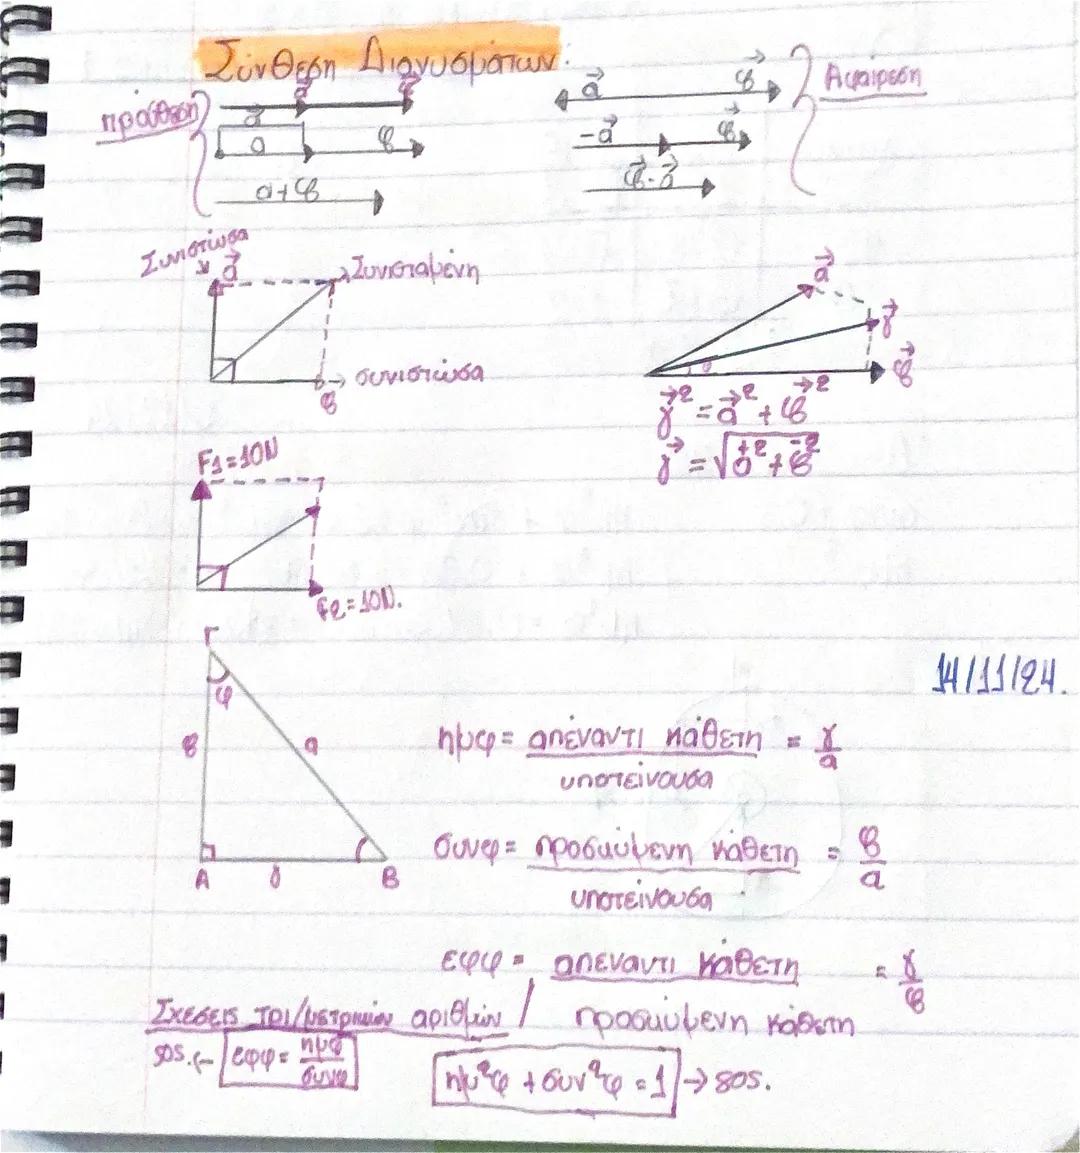 Σύνθεση Διανυσμάτων:
πρόσθεση
a⃗
a⃗
a
β
a+β
a⃗ β⃗
Αφαίρεση
-a⃗ β⃗
β⃗-a⃗
Συνιστώσα
a⃗
Συνισταμένη
συνιστώσα
β
a⃗
γ⃗
β⃗
γ⃗² = a⃗² + β⃗²
γ⃗ = √a⃗²+β⃗²
F1=10N
F2=10N.
14/11/24.
Γ
φ
β
a
A
B
ημφ = απέναντι κάθετη / υποτείνουσα = γ/a
συνφ = προσκύμενη κάθετη / υποτείνουσα = β/a
εφφ = απεναντι κάθετη / προσκύμενη κάθετη = γ/β
Σχέσεις τρι/μετρικών αριθμών
sos. ← εφφ = ημφ/συνφ
ημ²φ + συν²φ = 1 → sos.